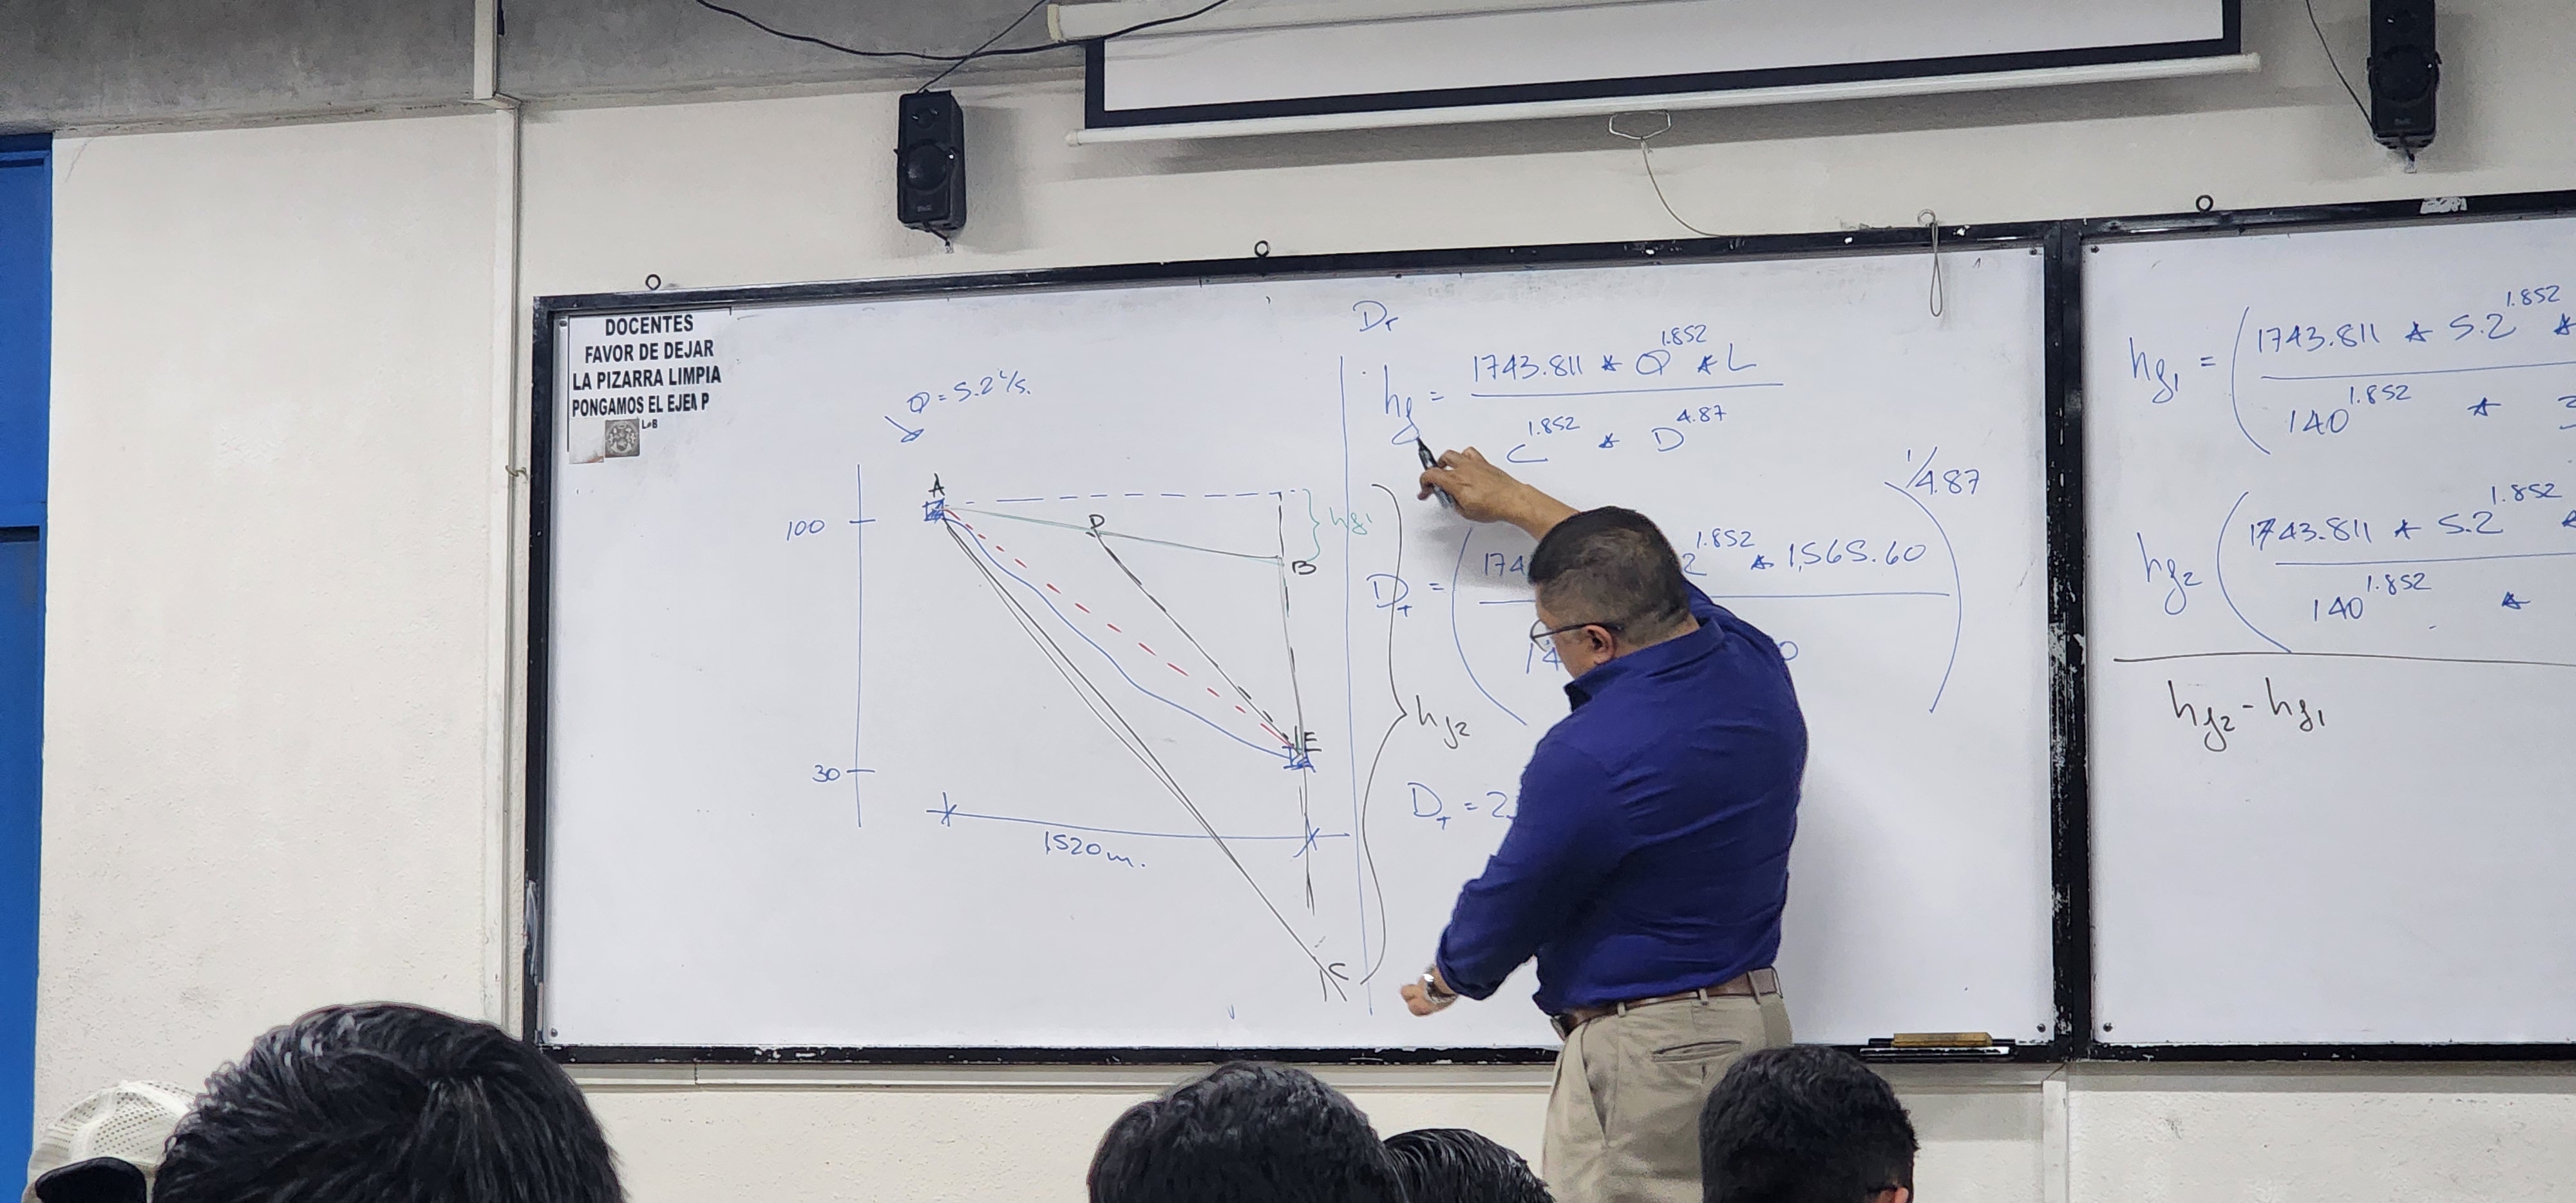 DOCENTES
FAVOR DE DEJAR
LA PIZARRA LIMPIA
PONGAMOS EL EJEM P
LAB
Q = 5.2 L/s.
A
100
D
B
hf1
E
30
1,520 m.
C
hf2
hf = 1743.811 * Q^1.852 * L
C^1.852 * D^4.87
1/4.87
DT = 174 2^1.852 * 1,565.60
14 0
DT = 2.
hf1 = 1743.811 * 5.2^1.852 *
140^1.852 * 3
hf2 1743.811 * 5.2^1.852 *
140^1.852 *
hf2 - hf1